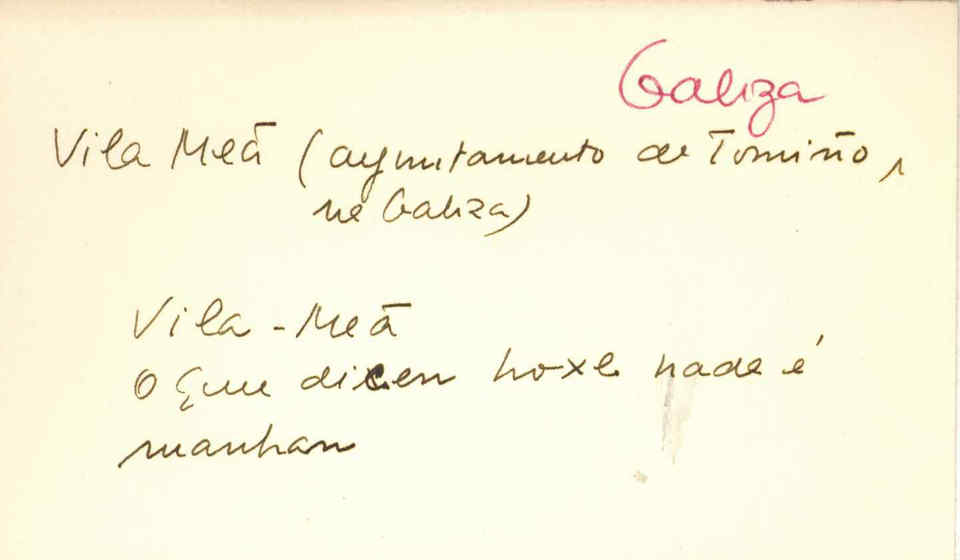 Galiza
Vila Meã (ayuntamento de Tomiño,
na Galiza)
Vila-Meã
O que dicen hoxe nada é
manhan